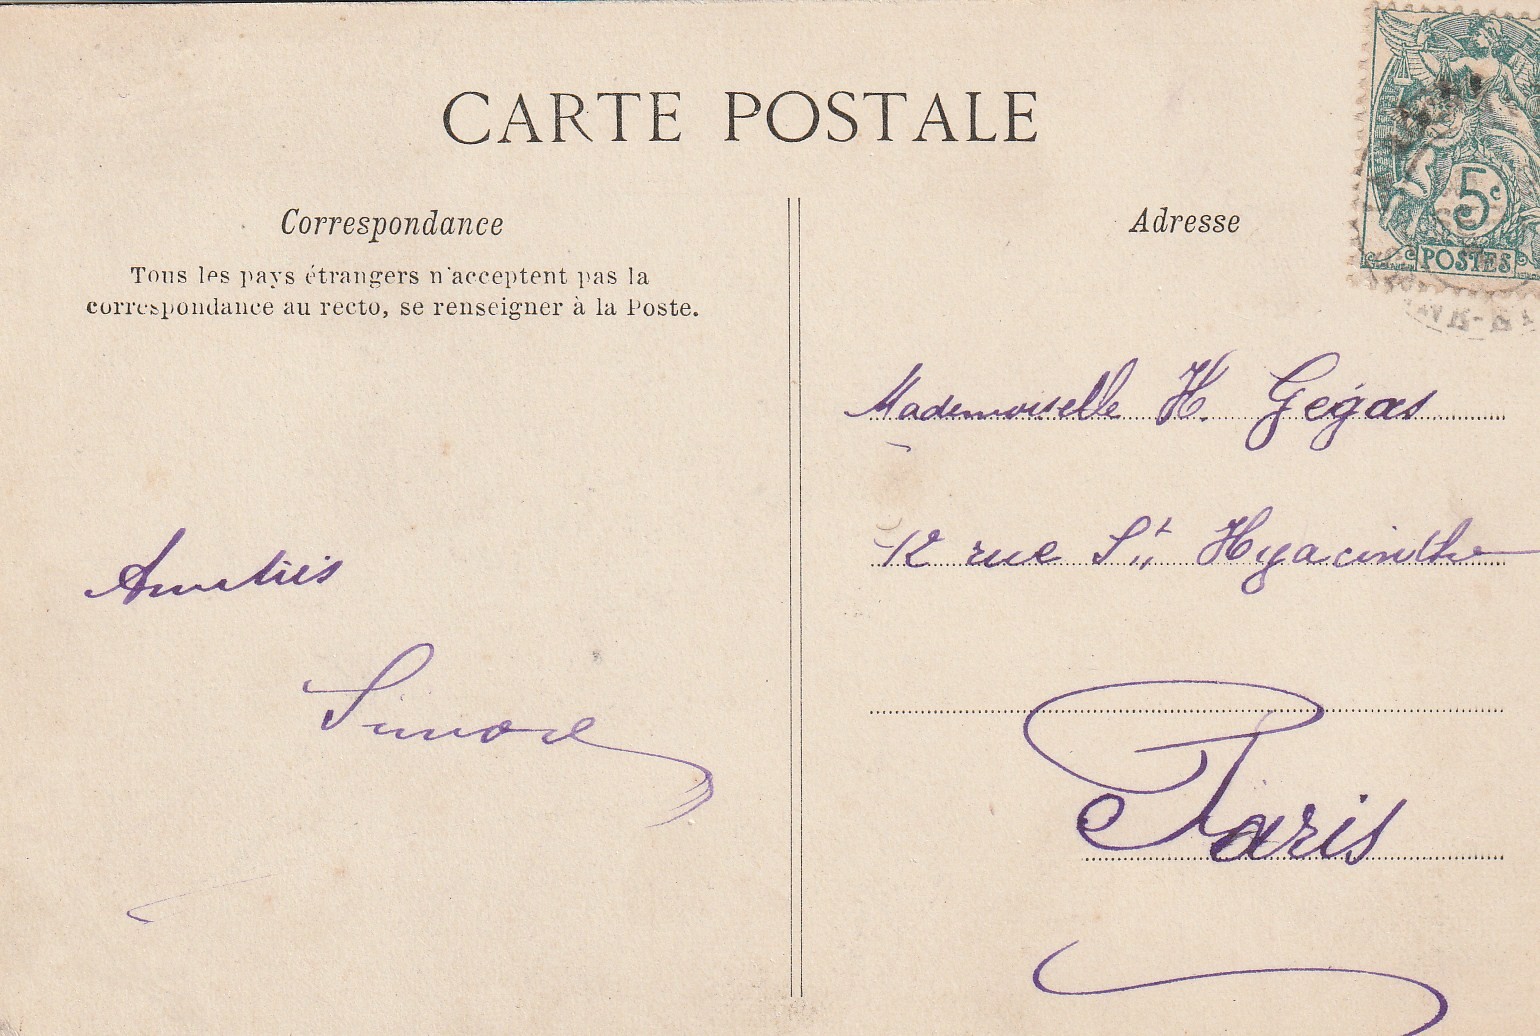 CARTE POSTALE
Correspondance
Tous les pays étrangers n'acceptent pas la
correspondance au recto, se renseigner à la Poste.
Amitiés
Simone
Adresse
5c
POSTES
Mademoiselle H. Gégas
12 rue St Hyacinthe
Paris